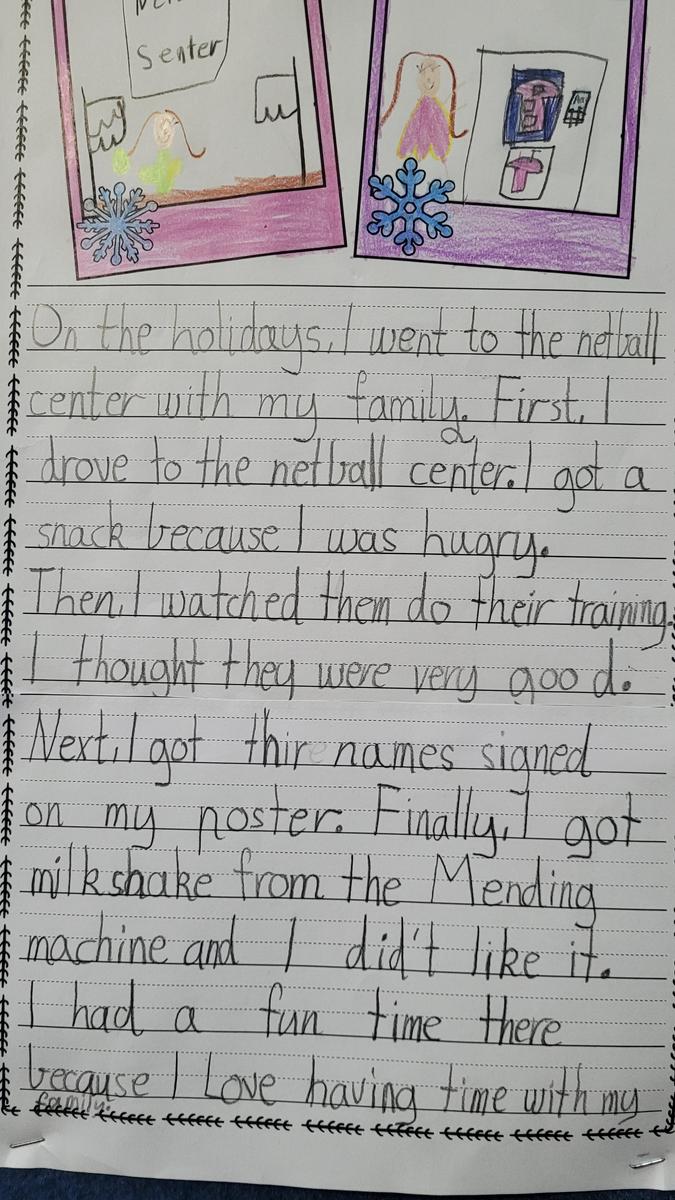 Senter
On the holidays, I went to the netball
center with my family. First, I
drove to the netball center. I got a
snack because I was hugry.
Then, I watched them do their training.
I thought they were very good.
Next, I got thir names signed
on my poster. Finally, I got
milkshake from the Mending
machine and I did't like it.
I had a fun time there
because I Love having time with my
family.